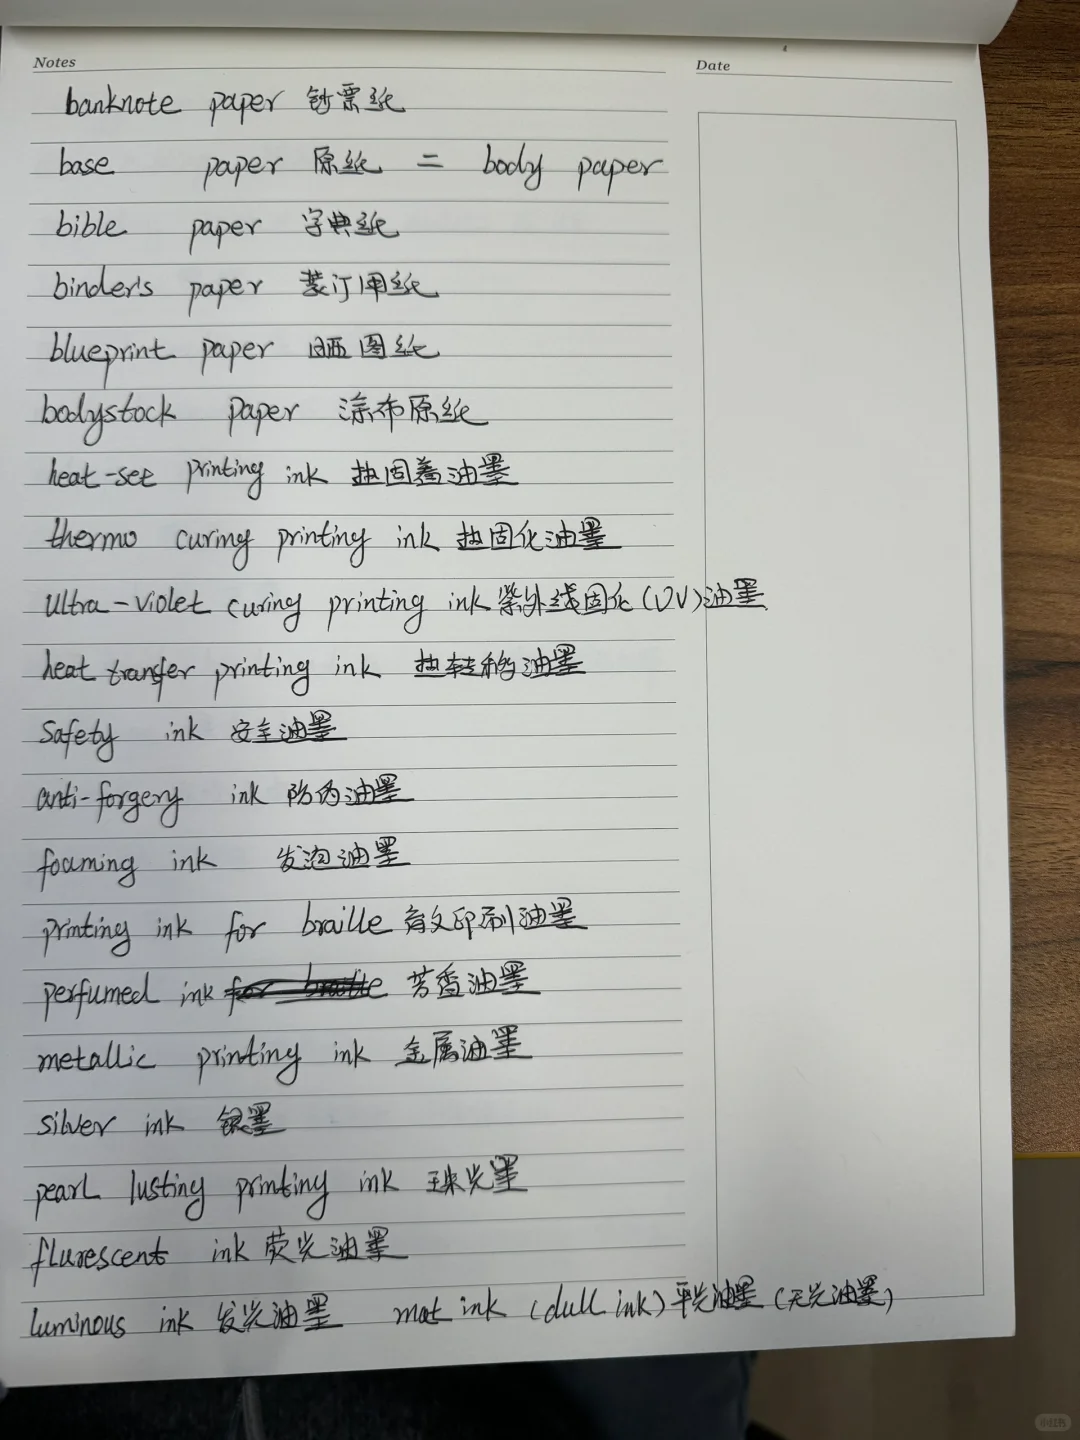 Notes
Date
banknote paper 钞票纸
base paper 原纸 = body paper
bible paper 字典纸
binder's paper 装订用纸
blueprint paper 晒图纸
bodystock paper 涂布原纸
heat-set printing ink 热固着油墨
thermo curing printing ink 热固化油墨
ultra-violet curing printing ink 紫外线固化(UV)油墨
heat transfer printing ink 热转移油墨
safety ink 安全油墨
anti-forgery ink 防伪油墨
foaming ink 发泡油墨
printing ink for braille 盲文印刷油墨
perfumed ink for braille 芳香油墨
metallic printing ink 金属油墨
silver ink 银墨
pearl lusting printing ink 珠光墨
flurescent ink 荧光油墨
luminous ink 发光油墨 mat ink (dull ink) 平光油墨 (无光油墨)
小红书